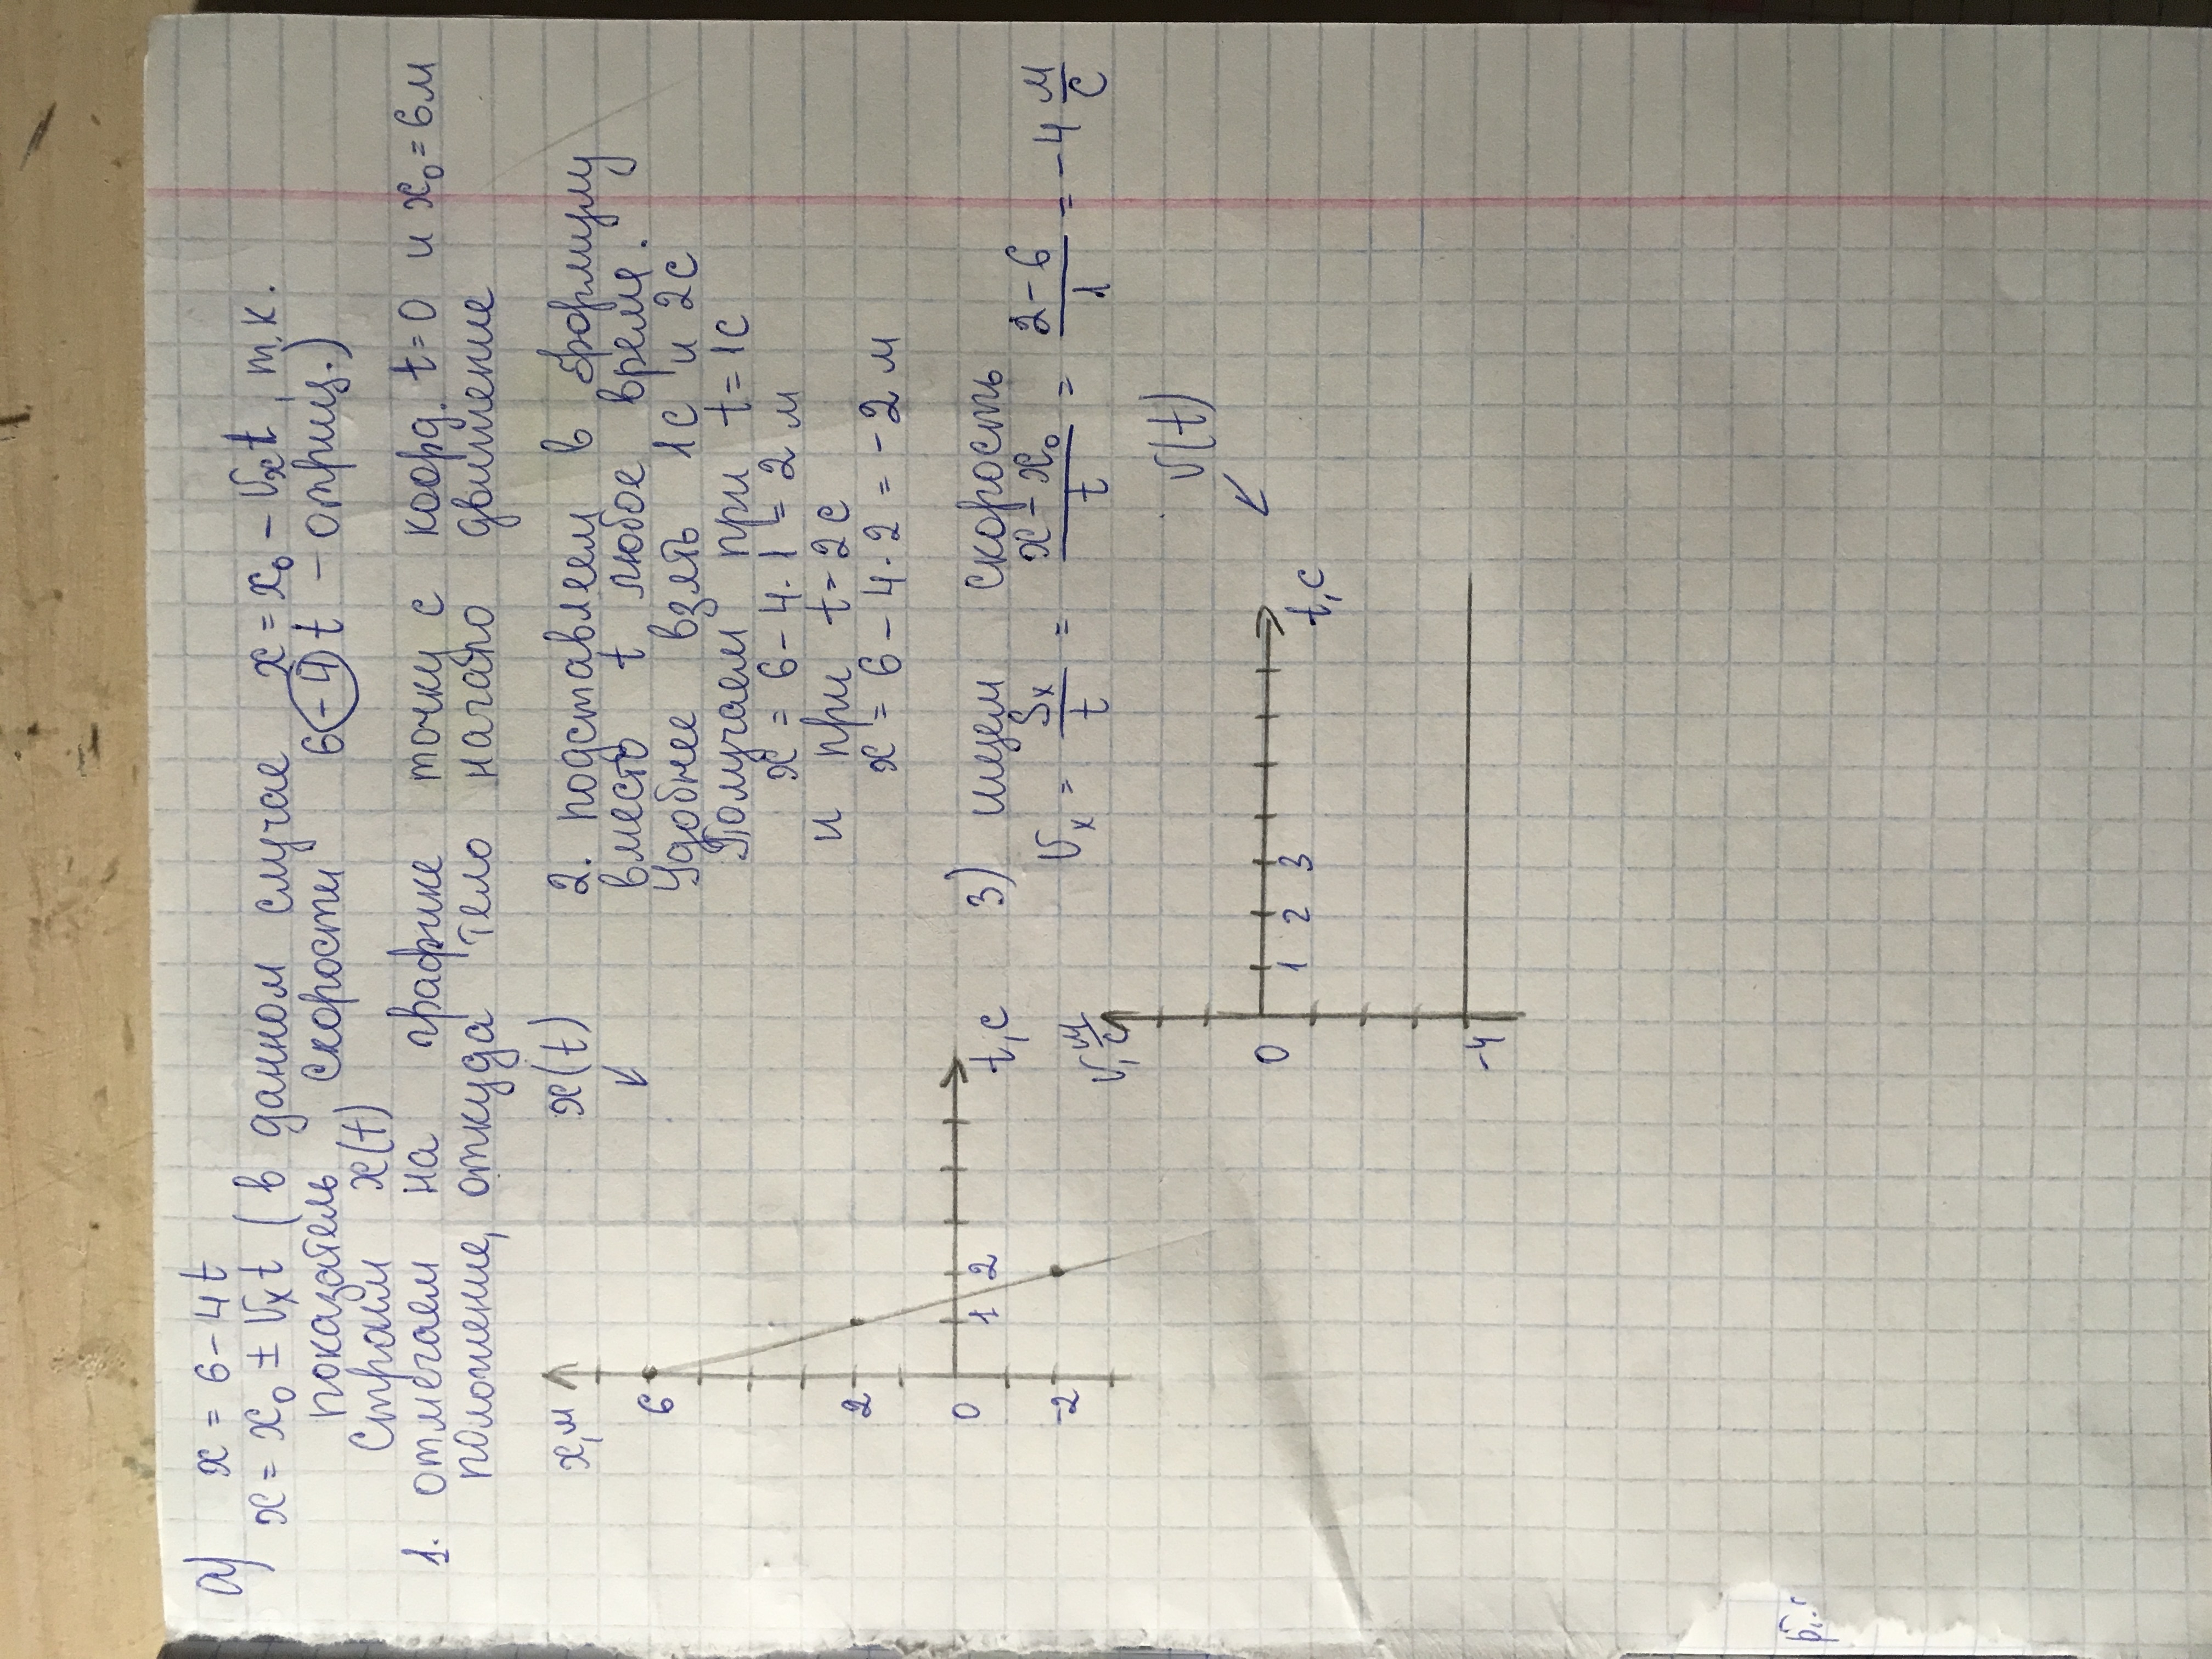 а) x = 6 - 4t
x = x₀ ± Vₓt (в данном случае x = x₀ - Vₓt, т.к.
показатель скорости 6-4t - отриц.)
Строим x(t)
1. отмечаем на графике точку с коорд. t=0 и x₀=6м
положение, откуда тело начало движение
x(t)
2. подставляем в формулу
вместо t любое время.
Удобнее взять 1с и 2с
Получаем при t=1с
x = 6-4·1 = 2 м
и при t=2с
x = 6-4·2 = -2 м
x,м
6
2
0
-2
1 2
t,с
3) ищем скорость
Vₓ = Sₓ/t = x-x₀/t = 2-6/1 = -4 м/с
V(t)
V, м/с
0
-4
1 2 3
t,с